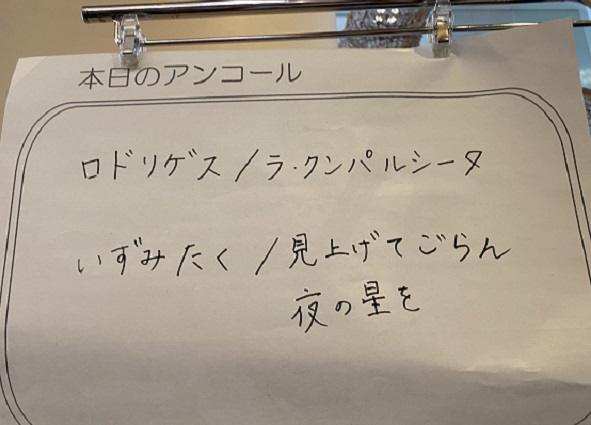 本日のアンコール
ロドリゲス/ラ・クンパルシータ
いずみたく/見上げてごらん
夜の星を